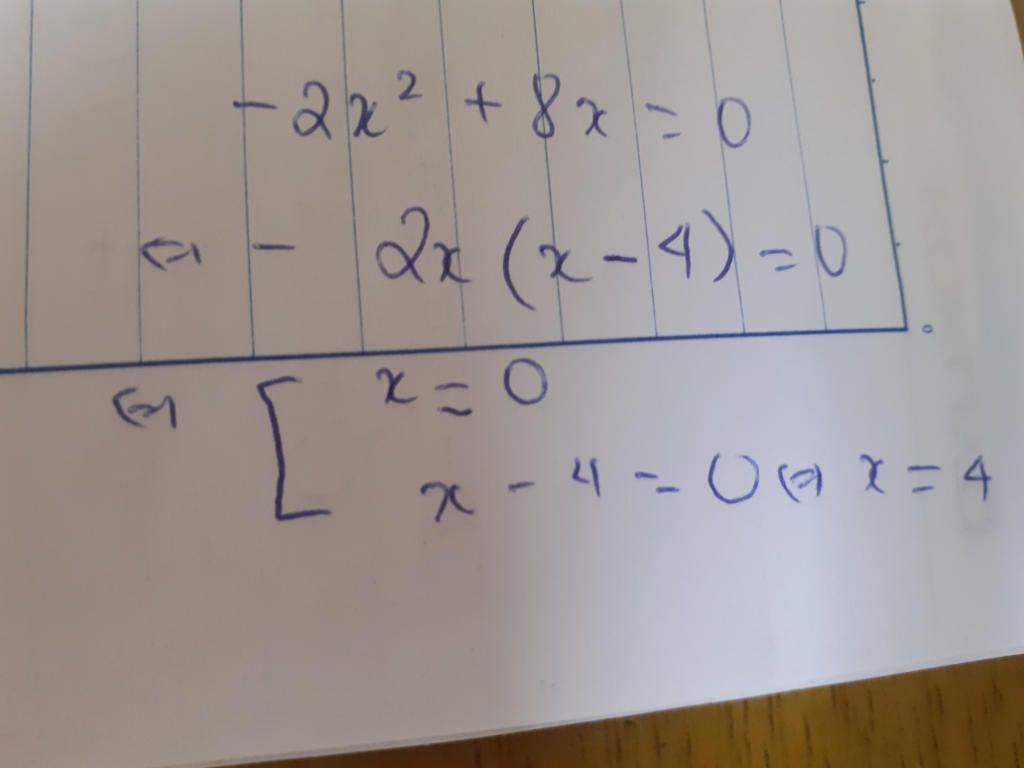 - 2x² + 8x = 0
⇔ - 2x (x - 4) = 0
⇔ [ x = 0
x - 4 = 0 ⇔ x = 4